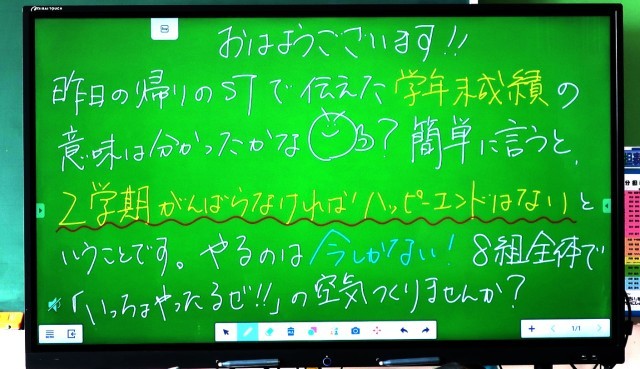 おはようございます!!
昨日の帰りのSTで伝えた学年末成績の
意味は分かったかな?簡単に言うと、
2学期がんばらなければハッピーエンドはないと
いうことです。やるのは今しかない!8組全体で
「いっちょやったるぜ!!」の空気つくりませんか?
1/1